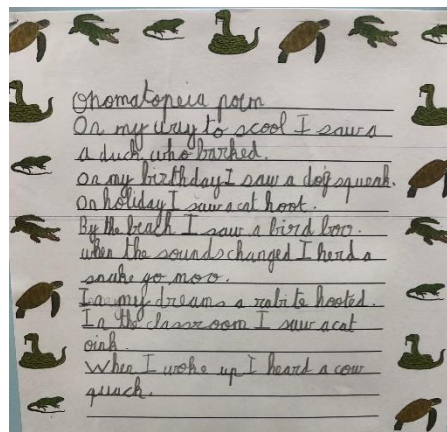 Onomatopeia poem
On my way to scool I saw a
a duck who barked.
on my birthday I saw a dog squeak.
On holiday I saw a cat hoot.
By the beach I saw a bird boo.
when the sounds changed I herd a
snake go moo.
In my dreams a rabite hooted.
In the classroom I saw a cat
oink.
When I woke up I heard a cow
quack.